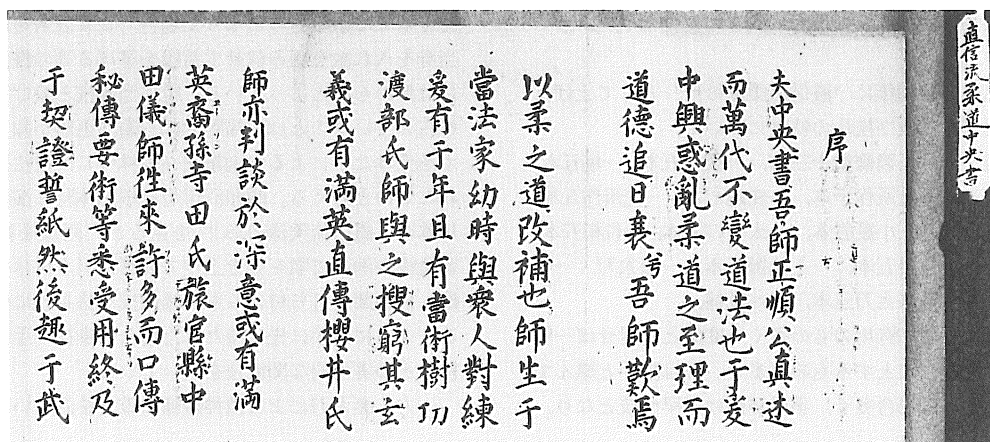 直信流柔道中央書
序
夫中央書吾師正順公真述
而萬代不變道法也于爰
中興惑亂柔道之至理而
道德追日衰兮吾師歎焉
以柔之道改補也師生于
當法家幼時與衆人對練
爰有于年且有當術樹功
渡部氏師與之搜窮其玄
義或有満英直傳櫻井氏
師亦判談於深意或有満
英裔孫寺田氏旅官縣中
田儀師徃來許多而口傳
秘傳要術等悉受用終及
于契證誓紙然後趣于武